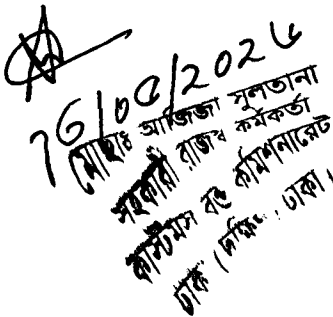 মোছাঃ আজিজা সুলতানা
সহকারী রাজস্ব কর্মকর্তা
কাস্টমস বন্ড কমিশনারেট
ঢাকা (দক্ষিণ), ঢাকা।